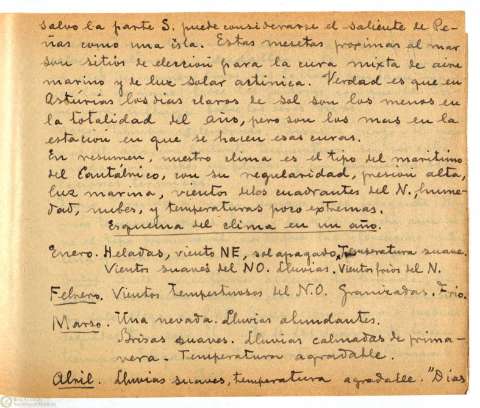 salvo la parte S. puede considerarse el saliente de Pe-
ñas como una isla. Estas mesetas proximas al mar
son sitios de eleccion para la cura mixta de aire
marino y de luz solar actinica. Verdad es que en
Asturias los dias claros de sol son los menos en
la totalidad del año, pero son los mas en la
estación en que se hacen esas curas.
En resumen, nuestro clima es el tipo del maritimo
del Cantábrico, con su regularidad, presión alta,
luz marina, vientos delos cuadrantes del N., hume-
dad, nubes, y temperaturas poco extremas.
Esquema del clima en un año.
Enero. Heladas, viento NE, sol apagado, Temperatura suave.
Vientos suaves del NO. Lluvias. Vientos frios del N.
Febrero. Vientos Tempestuosos del N.O. Granizadas. Frio.
Marso. Una nevada. Lluvias abundantes.
Brisas suaves. Lluvias calmadas de prima-
vera. Temperatura agradable.
Abril. Lluvias suaves, temperatura agradable. "Dias